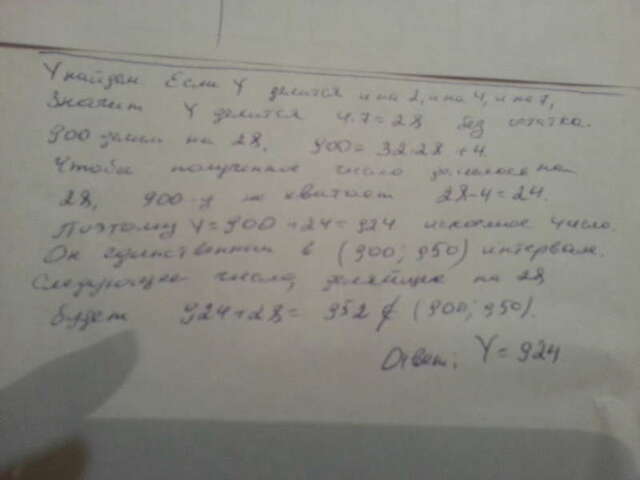 Y найдем Если Y делится и на 2, и на 4, и на 7,
Значит Y делится 4·7=28 без остатка.
900 делим на 28, 900=32·28+4.
Чтобы полученное число делилось на
28, 900-у не хватает 28-4=24.
Поэтому Y=900+24=924 искомое число.
Он единственный в (900; 950) интервале.
Следующее число, делящее на 28
будет 924+28=952 ∉ (900; 950).
Ответ: Y=924